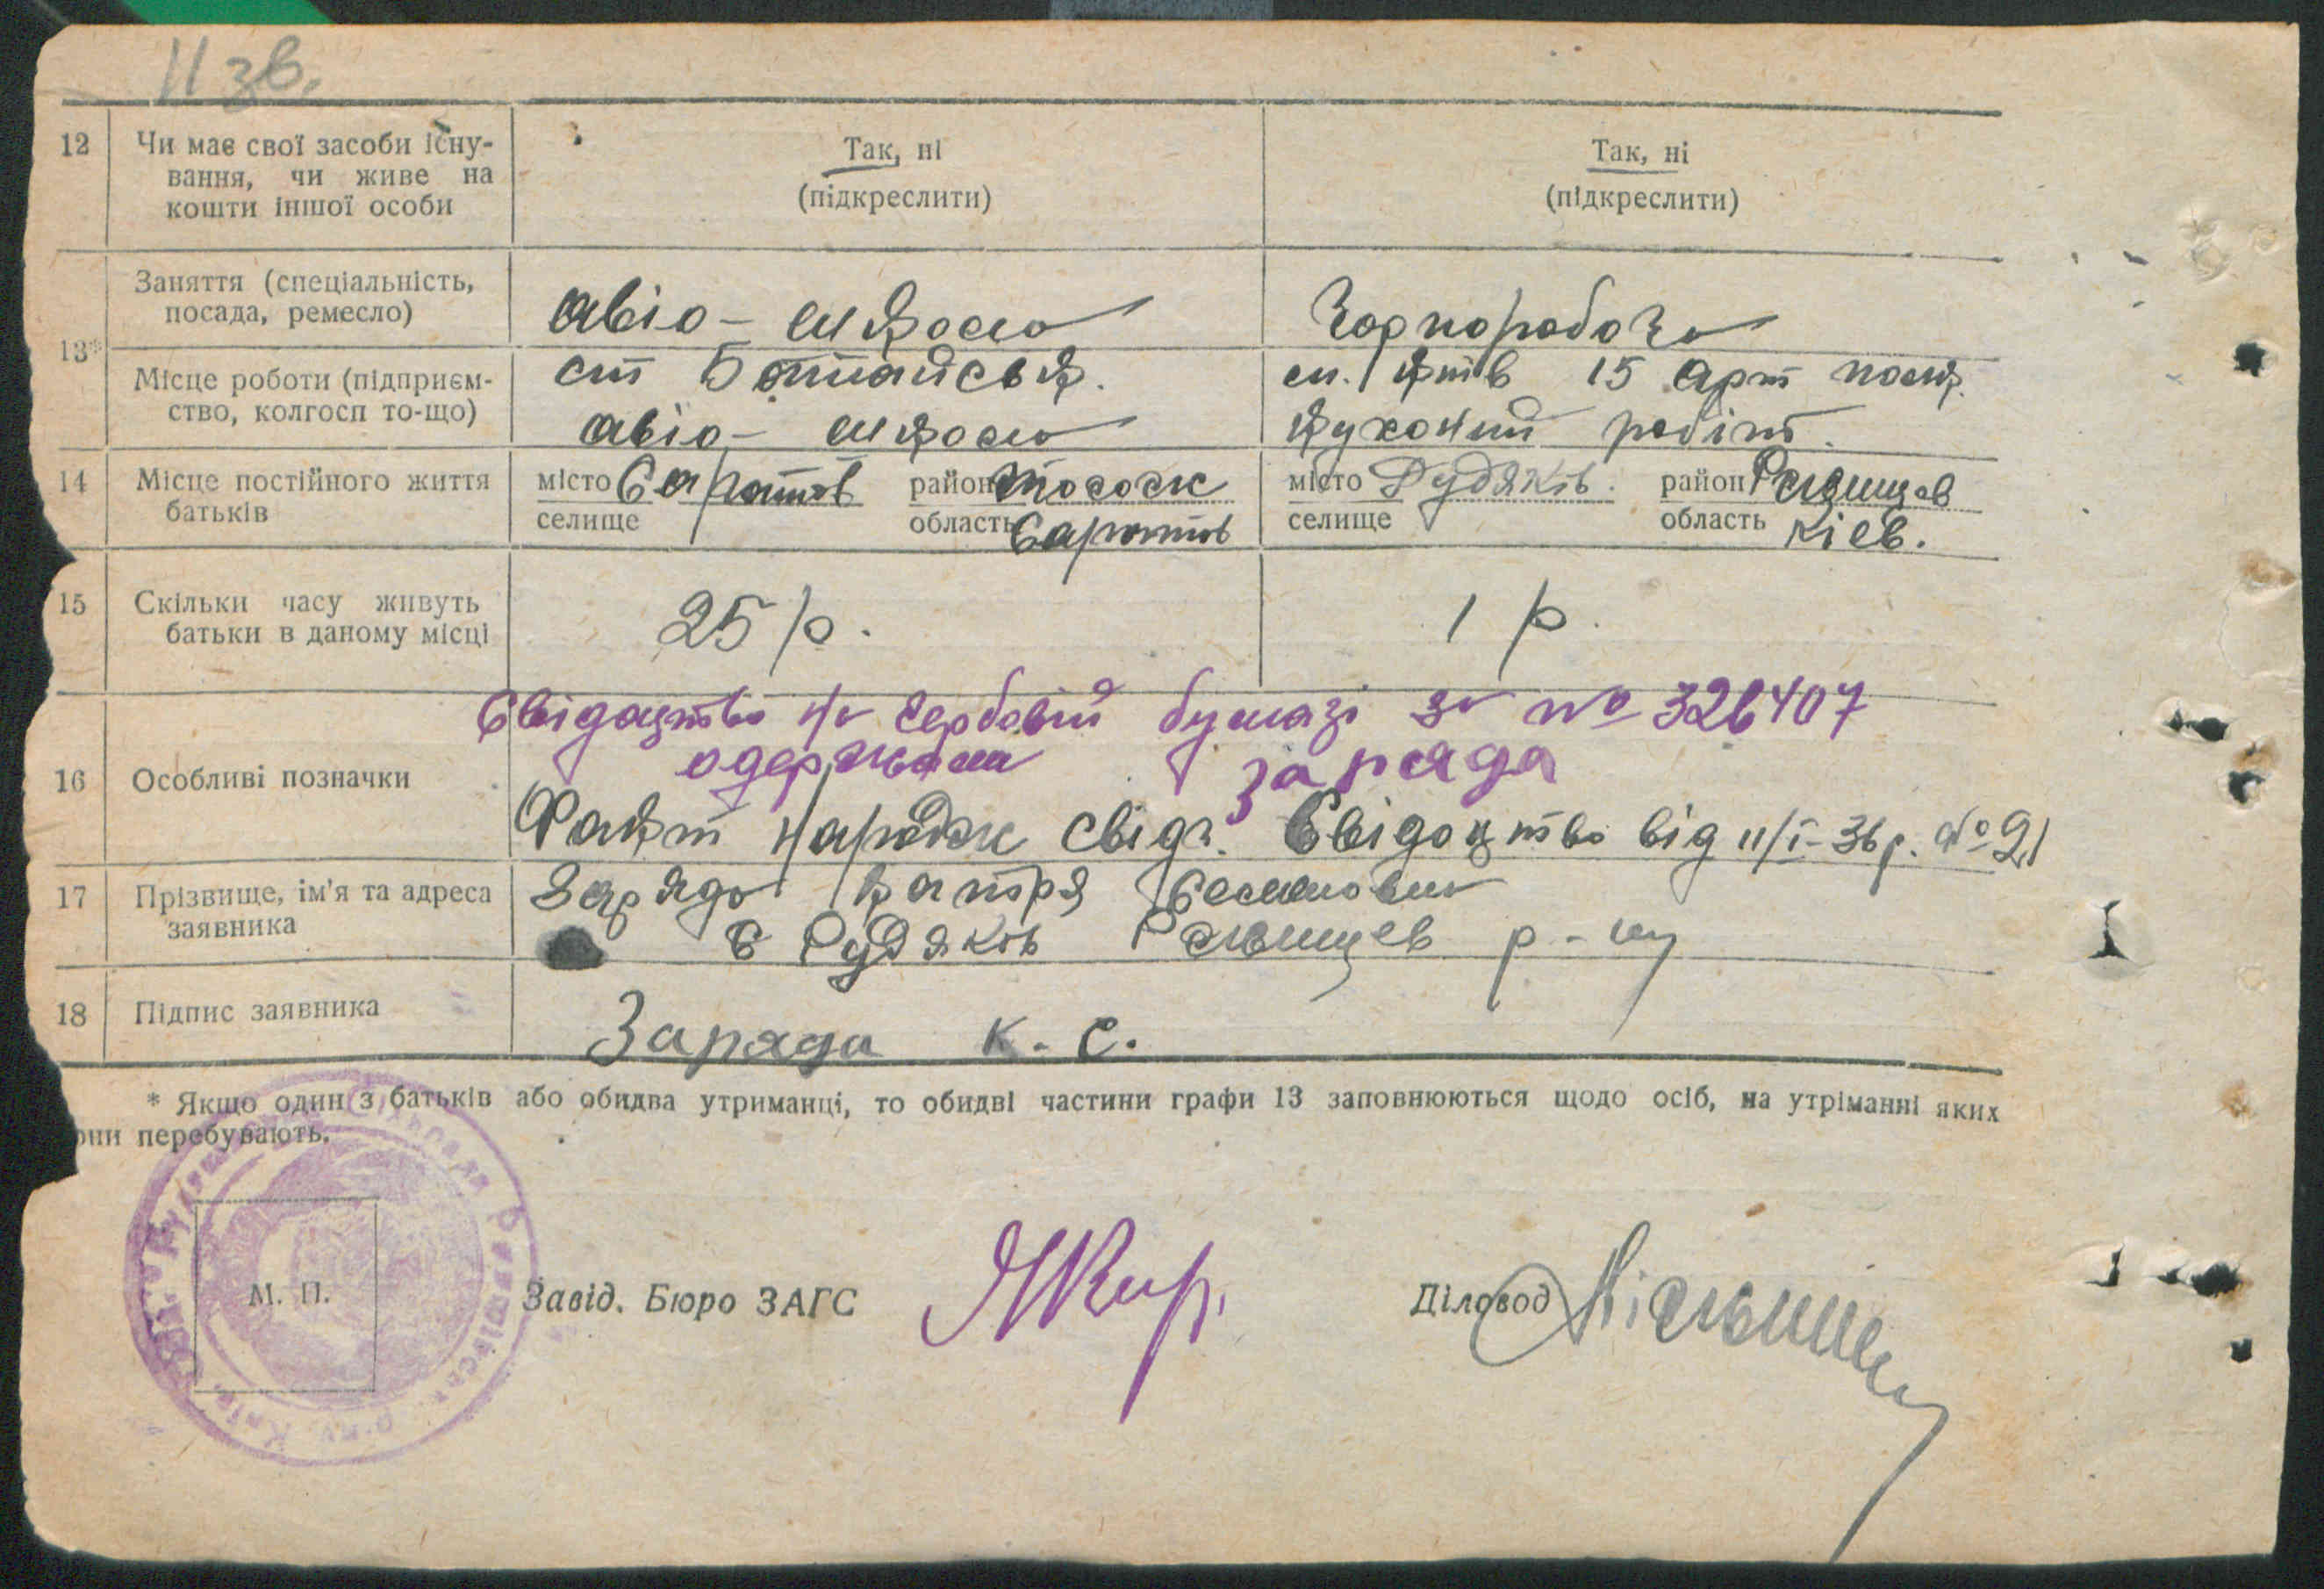 11 зв.
12 Чи має свої засоби існу- Так, ні Так, ні
вання, чи живе на (підкреслити) (підкреслити)
кошти іншої особи
13* Заняття (спеціальність, авіо - школа Чорноробоча
посада, ремесло)
Місце роботи (підприєм- ст Ботайськ. 15 арт полк
ство, колгосп то-що) авіо - школа кухоний робіт.
14 Місце постійного життя місто Саратов район місто Рудяків. район Ржищев
батьків селище область Саратов селище область Київ.
15 Скільки часу живуть 25 р. 1 р.
батьки в даному місці
Свідоцтво на гербовій бумазі за № 326407
одержала Заряда
16 Особливі позначки
Факт народж свідч. Свідоцтво від 11/I-36 р. № 21
17 Прізвище, ім'я та адреса Заряда Катря Семеновна
заявника С Рудяків Ржищев р-ну
18 Підпис заявника Заряда К. С.
* Якщо один з батьків або обидва утриманці, то обидві частини графи 13 заповнюються щодо осіб, на утріманні яких
они перебувають.
М. П. Завід. Бюро ЗАГС Діловод